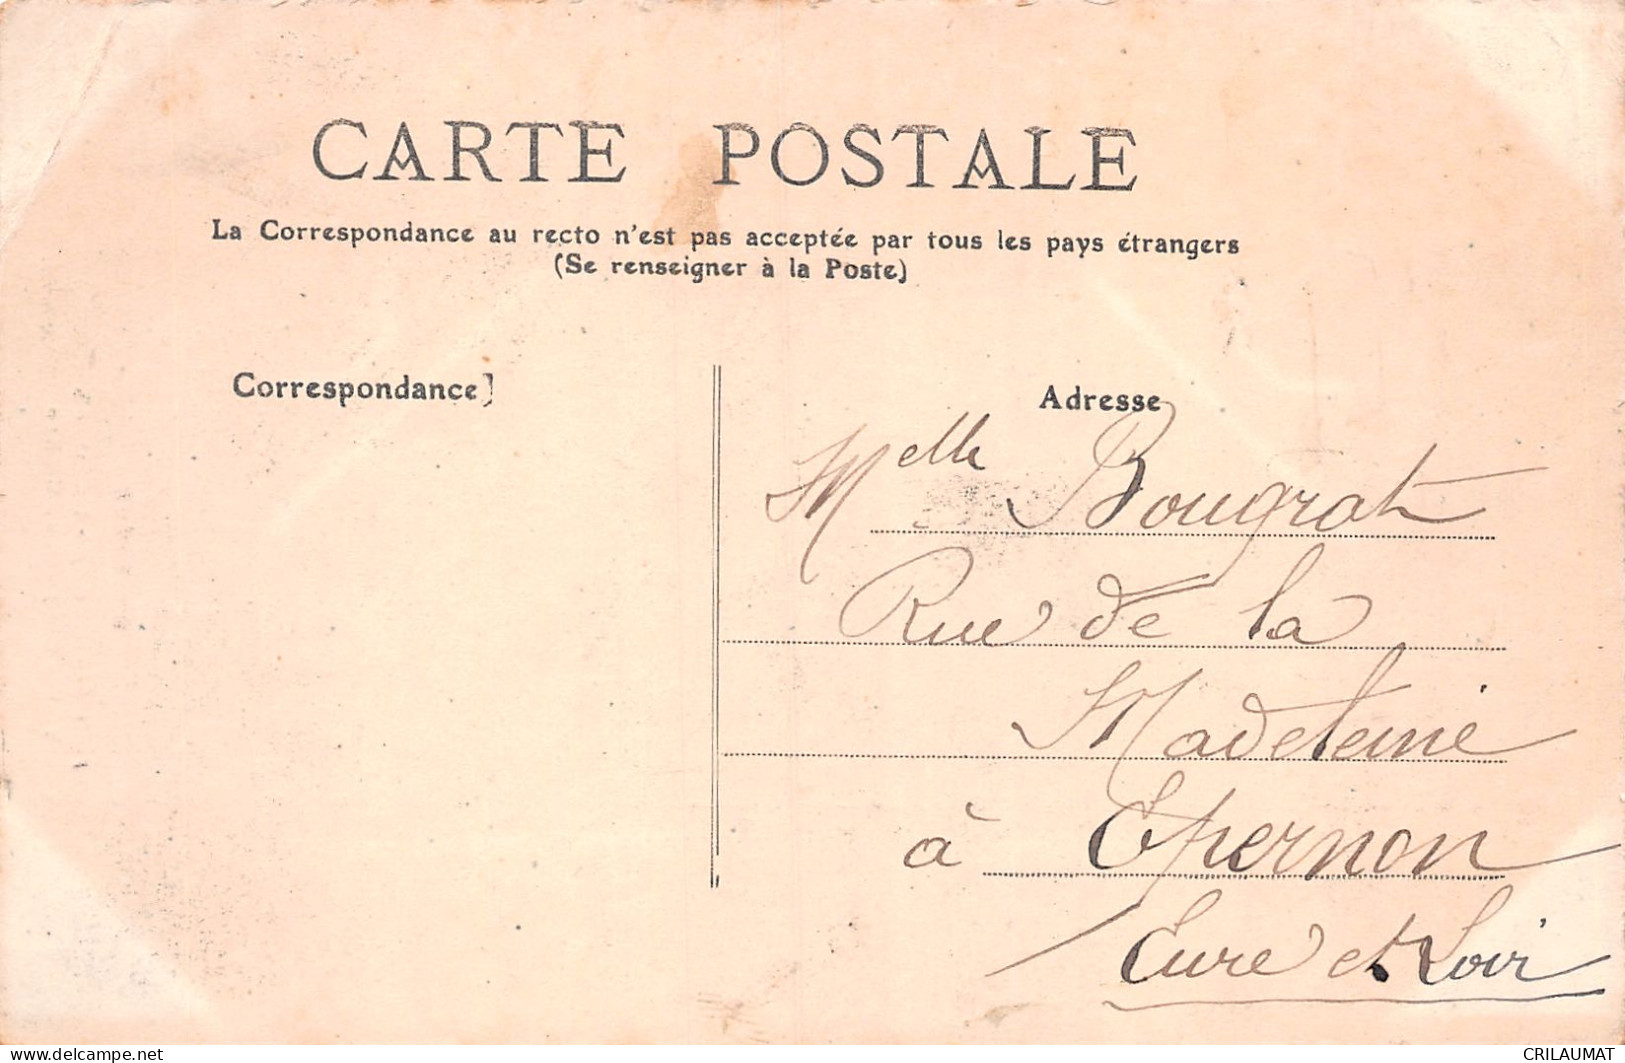 CARTE POSTALE
La Correspondance au recto n'est pas acceptée par tous les pays étrangers
(Se renseigner à la Poste)
Correspondance
Adresse
Melle Bougrat
Rue de la
Madeleine
à Epernon
Eure et Loir
www.delcampe.net
CRILAUMAT